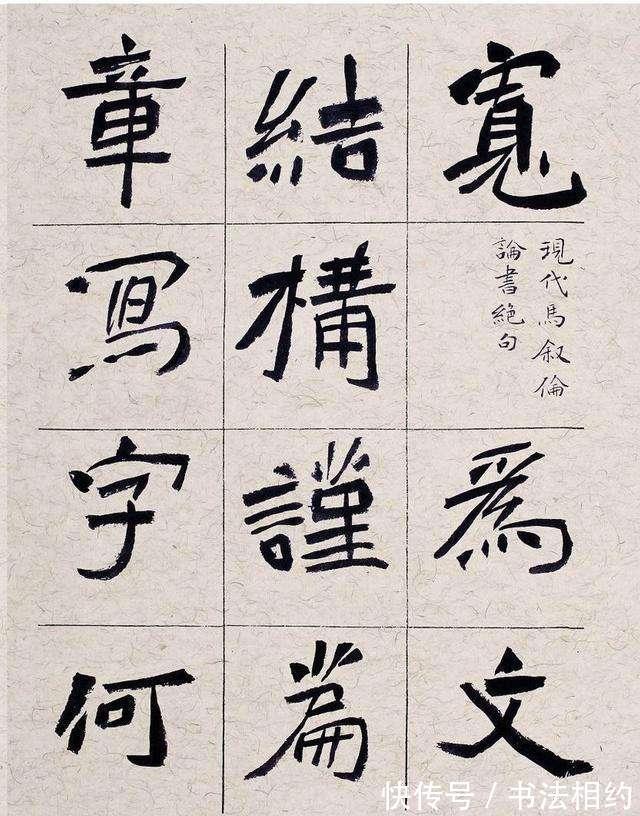 寬
現代馬叙倫
論書絕句
為文
結構謹篇
章寫字何
快传号/书法相约